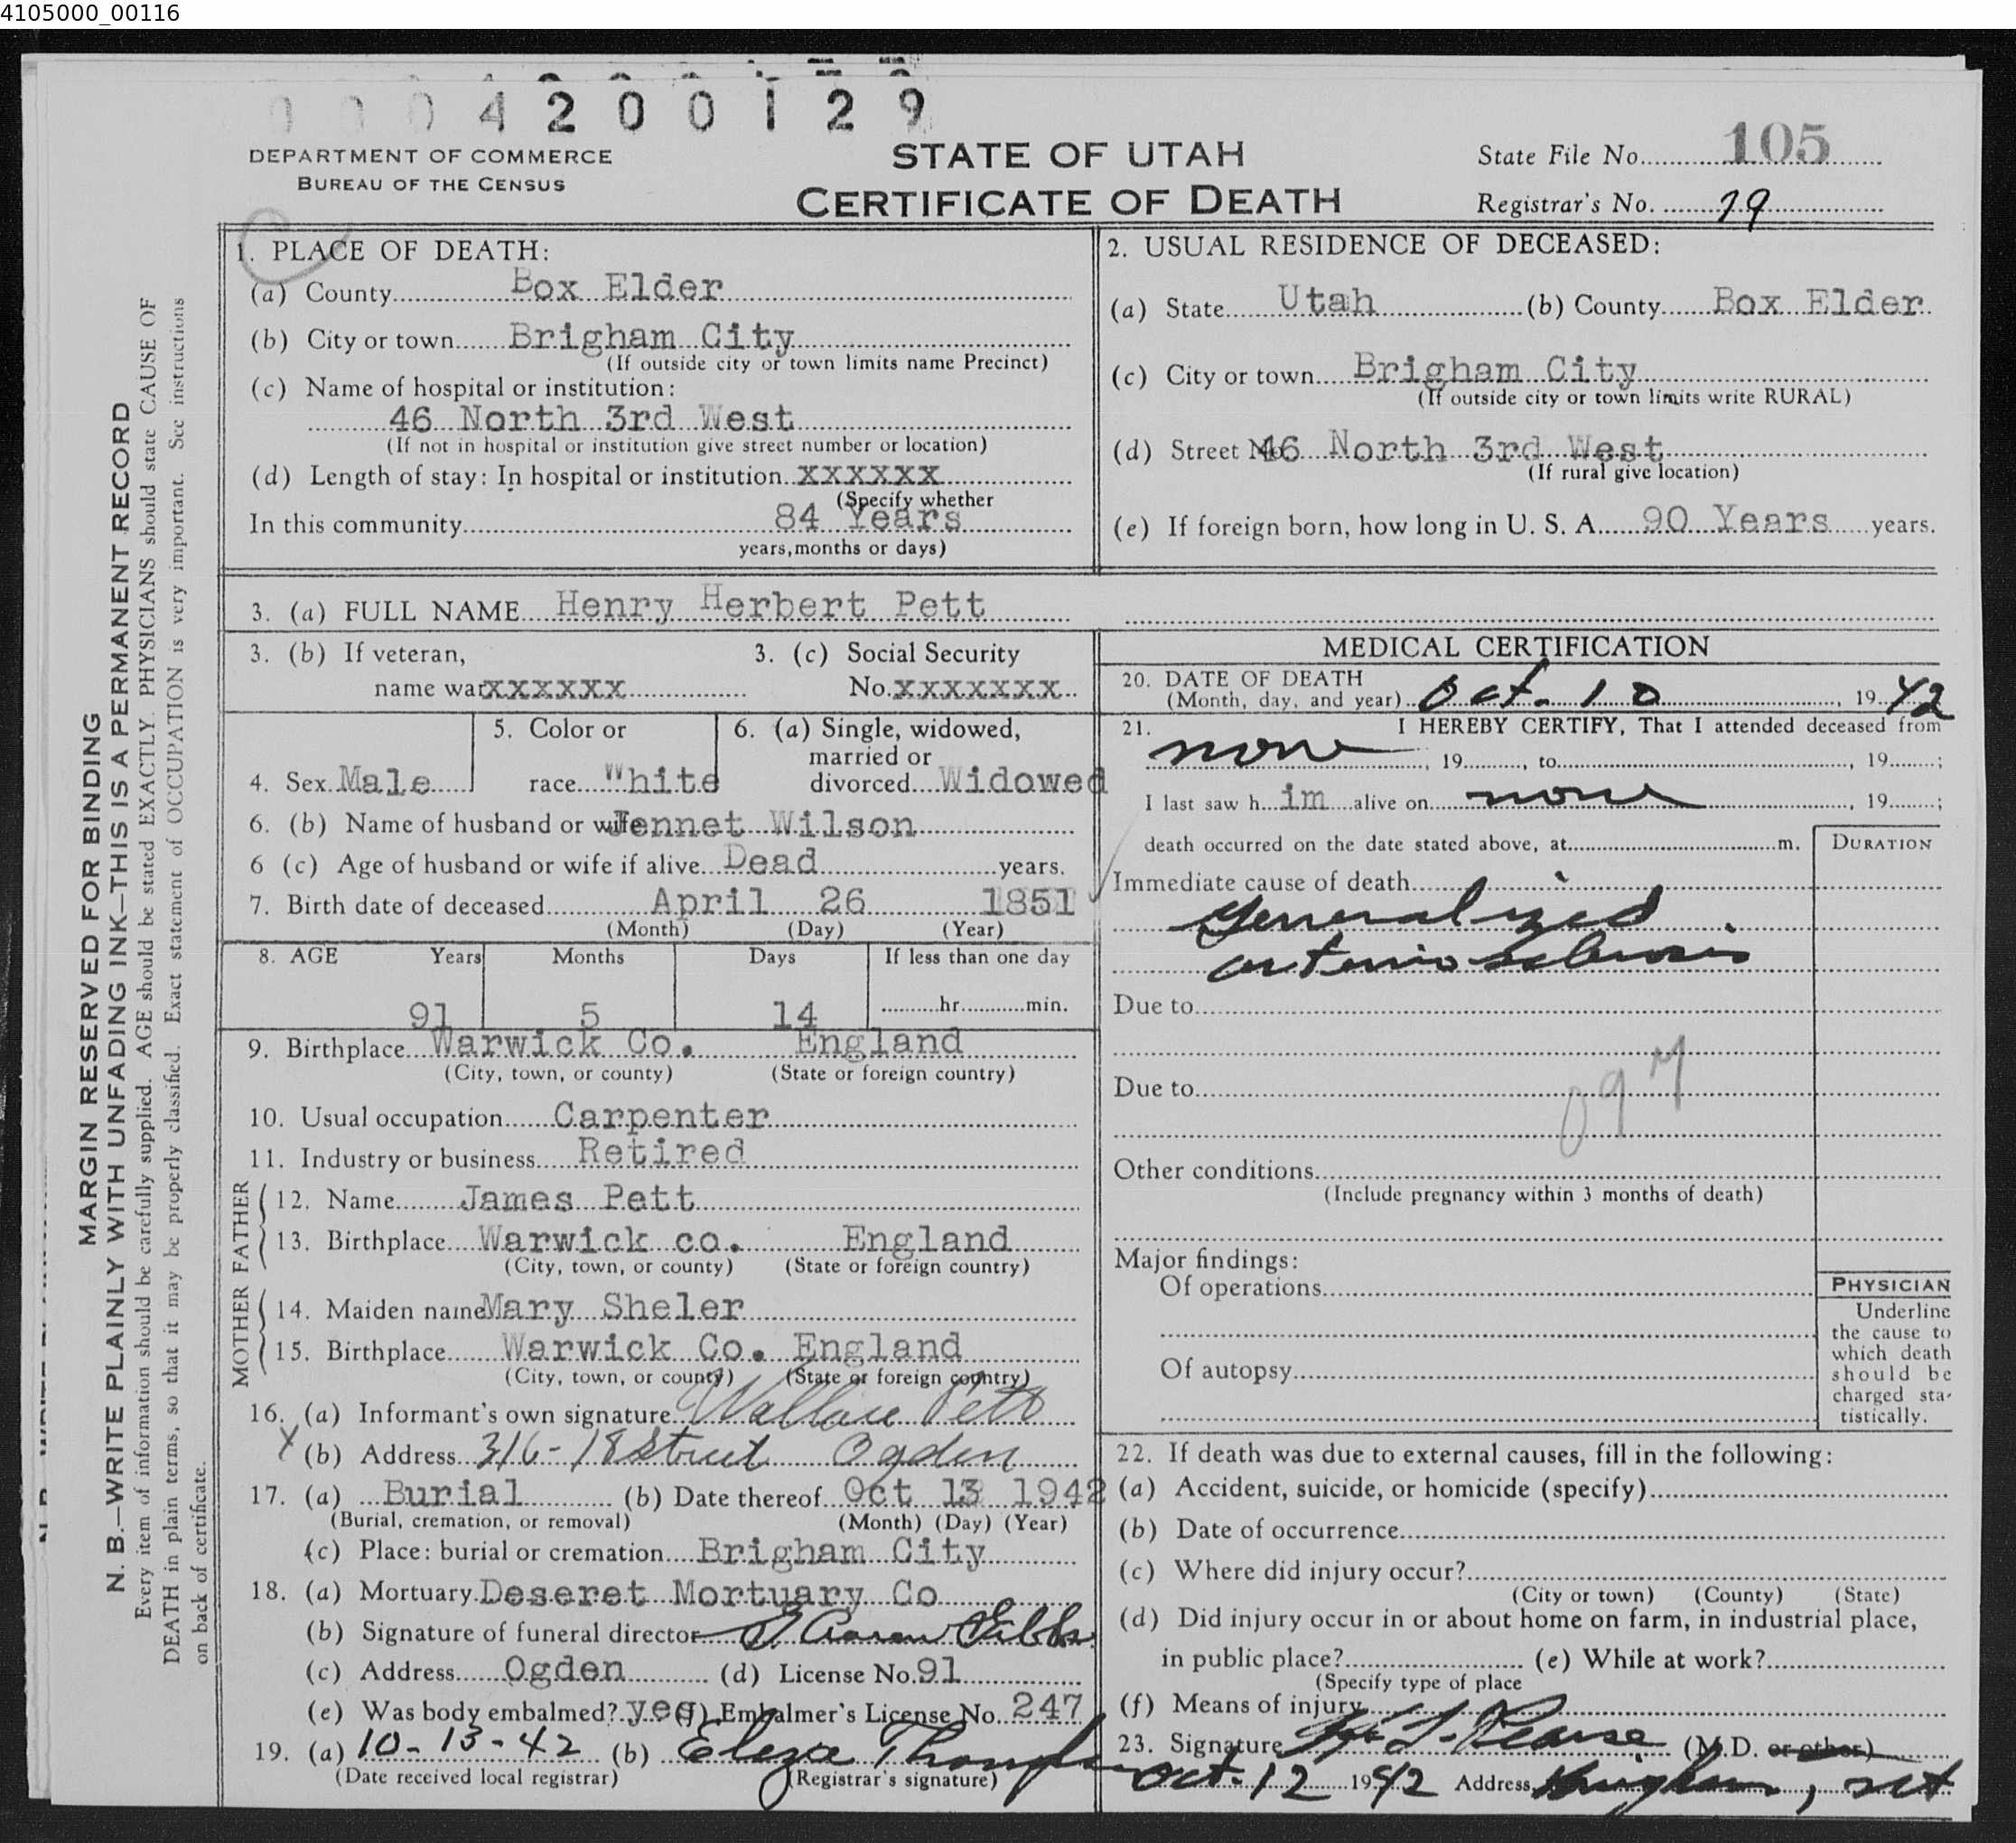 4105000_00116
0004200129
DEPARTMENT OF COMMERCE
BUREAU OF THE CENSUS
STATE OF UTAH
CERTIFICATE OF DEATH
State File No. 105
Registrar's No. 79
MARGIN RESERVED FOR BINDING
N. B.—WRITE PLAINLY WITH UNFADING INK—THIS IS A PERMANENT RECORD
Every item of information should be carefully supplied. AGE should be stated EXACTLY. PHYSICIANS should state CAUSE OF
DEATH in plain terms, so that it may be properly classified. Exact statement of OCCUPATION is very important. See instructions
on back of certificate.
1. PLACE OF DEATH:
(a) County Box Elder
(b) City or town Brigham City
(If outside city or town limits name Precinct)
(c) Name of hospital or institution:
46 North 3rd West
(If not in hospital or institution give street number or location)
(d) Length of stay: In hospital or institution XXXXXX
(Specify whether
In this community 84 Years
years, months or days)
2. USUAL RESIDENCE OF DECEASED:
(a) State Utah (b) County Box Elder
(c) City or town Brigham City
(If outside city or town limits write RURAL)
(d) Street No. 46 North 3rd West
(If rural give location)
(e) If foreign born, how long in U. S. A. 90 Years years.
3. (a) FULL NAME Henry Herbert Pett
3. (b) If veteran, 3. (c) Social Security
name war XXXXXX No. XXXXXXX
5. Color or 6. (a) Single, widowed,
married or
4. Sex Male race White divorced Widowed
6. (b) Name of husband or wife Jennet Wilson
6 (c) Age of husband or wife if alive Dead years.
7. Birth date of deceased April 26 1851
(Month) (Day) (Year)
8. AGE Years Months Days If less than one day
91 5 14 hr. min.
9. Birthplace Warwick Co. England
(City, town, or county) (State or foreign country)
10. Usual occupation Carpenter
11. Industry or business Retired
FATHER
12. Name James Pett
13. Birthplace Warwick co. England
(City, town, or county) (State or foreign country)
MOTHER
14. Maiden name Mary Sheler
15. Birthplace Warwick Co. England
(City, town, or county) (State or foreign country)
16. (a) Informant's own signature Wallace Pett
X (b) Address 316-18 Street Ogden
17. (a) Burial (b) Date thereof Oct 13 1942
(Burial, cremation, or removal) (Month) (Day) (Year)
(c) Place: burial or cremation Brigham City
18. (a) Mortuary Deseret Mortuary Co
(b) Signature of funeral director Gibbs
(c) Address Ogden (d) License No. 91
(e) Was body embalmed? yes (f) Embalmer's License No. 247
19. (a) 10-13-42 (b) Eleza
(Date received local registrar) (Registrar's signature)
MEDICAL CERTIFICATION
20. DATE OF DEATH
(Month, day, and year) Oct-10, 1942
21. I HEREBY CERTIFY, That I attended deceased from
none, 19, to, 19;
I last saw him alive on none, 19;
death occurred on the date stated above, at m.
DURATION
Immediate cause of death
Generalized
arterio sclerosis
Due to
Due to
Other conditions
(Include pregnancy within 3 months of death)
Major findings:
Of operations
Of autopsy
PHYSICIAN
Underline
the cause to
which death
should be
charged sta-
tistically.
22. If death was due to external causes, fill in the following:
(a) Accident, suicide, or homicide (specify)
(b) Date of occurrence
(c) Where did injury occur?
(City or town) (County) (State)
(d) Did injury occur in or about home on farm, in industrial place,
in public place? (e) While at work?
(Specify type of place
(f) Means of injury
23. Signature Pearse (M.D. or other)
Oct-12 1942 Address Brigham, Ut